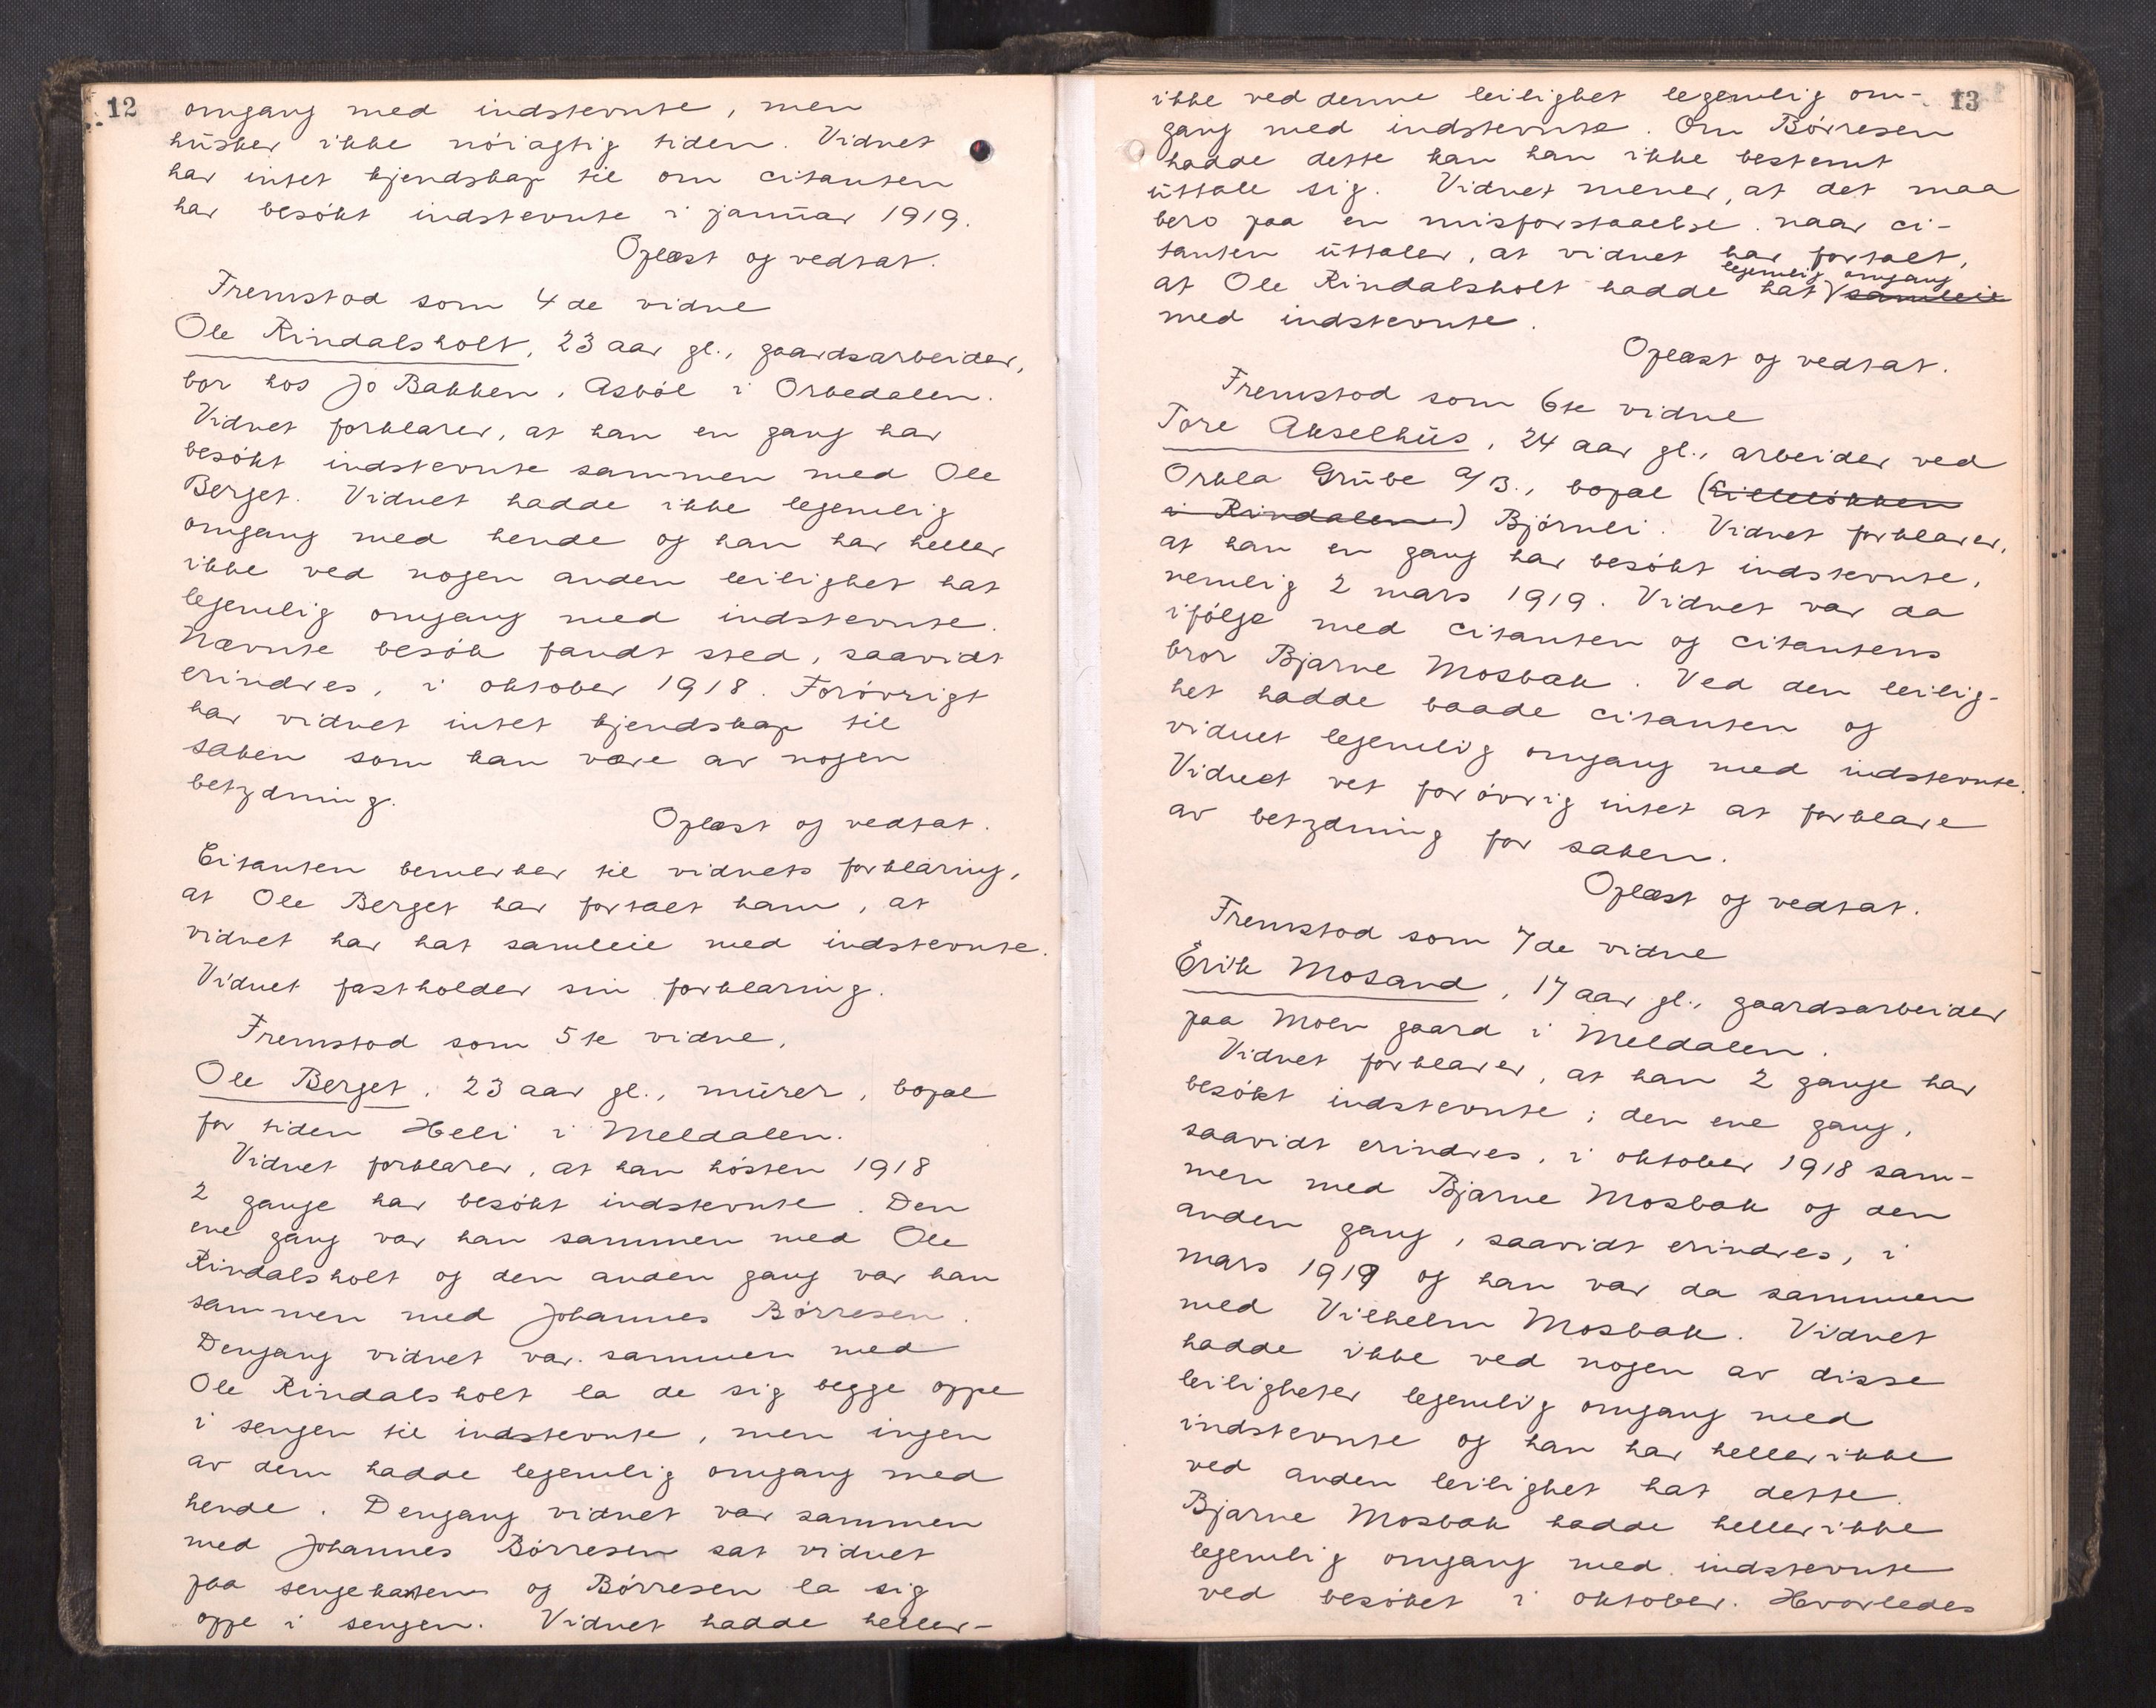 12
omgang med indstevnte, men
husker ikke nöiagtig tiden. Vidnet
har intet kjendskap til om citanten
har besökt indstevnte i januar 1919.
Oplæst og vedtat.
Fremstod som 4de vidne
Ole Rindalsholt, 23 aar gl., gaardsarbeider,
bor hos Jo Bakken, Asböl i Orkedalen.
Vidnet forklarer, at han en gang har
besökt indstevnte sammen med Ole
Berget. Vidnet hadde ikke legemlig
omgang med hende og han har heller
ikke ved nogen anden leilighet hat
legemlig omgang med indstevnte.
Nævnte besök fandt sted, saavidt
erindres, i oktober 1918. Forövrigt
har vidnet intet kjendskap til
saken som kan være av nogen
betydning.
Oplæst og vedtat.
Citanten bemerker til vidnets forklaring,
at Ole Berget har fortalt ham, at
vidnet har hat samleie med indstevnte.
Vidnet fastholder sin forklaring.
Fremstod som 5te vidne,
Ole Berget, 23 aar gl., murer, bopæl
for tiden Heli i Meldalen.
Vidnet forklarer, at han hösten 1918
2 gange har besökt indstevnte. Den
ene gang var han sammen med Ole
Rindalsholt og den anden gang var han
sammen med Johannes Börresen.
Dengang vidnet var sammen med
Ole Rindalsholt la de sig begge oppe
i sengen til indstevnte, men ingen
av dem hadde legemlig omgang med
hende. Dengang vidnet var sammen
med Johannes Börresen sat vidnet
paa sengekanten og Börresen la sig
oppe i sengen. Vidnet hadde heller-
13
ikke ved denne leilighet legemlig om-
gang med indstevnte. Om Börresen
hadde dette kan han ikke bestemt
uttale sig. Vidnet mener, at det maa
bero paa en misforstaaelse naar ci-
tanten uttaler, at vidnet har fortalt,
legemlig omgang
at Ole Rindalsholt hadde hat samleie
med indstevnte.
Oplæst og vedtat.
Fremstod som 6te vidne
Tore Akselhus, 24 aar gl., arbeider ved
Orkla Grube A/B., bopæl (Lillelökken
i Rindalen) Bjørnli. Vidnet forklarer,
at han en gang har besökt indstevnte,
nemlig 2 mars 1919. Vidnet var da
ifölge med citanten og citantens
bror Bjarne Mosbak. Ved den leilig-
het hadde baade citanten og
vidnet legemlig omgang med indstevnte.
Vidnet vet forövrig intet at forklare
av betydning for saken.
Oplæst og vedtat.
Fremstod som 7de vidne
Erik Mosand, 17 aar gl., gaardsarbeider
paa Moen gaard i Meldalen.
Vidnet forklarer, at han 2 gange har
besökt indstevnte; den ene gang,
saavidt erindres, i oktober 1918 sam-
men med Bjarne Mosbak og den
anden gang, saavidt erindres, i
mars 1919 og han var da sammen
med Vilhelm Mosbak. Vidnet
hadde ikke ved nogen av disse
leiligheter legemlig omgang med
indstevnte og han har heller ikke
ved anden leilighet hat dette.
Bjarne Mosbak hadde heller ikke
legemlig omgang med indstevnte
ved besöket i oktober. Hvorledes